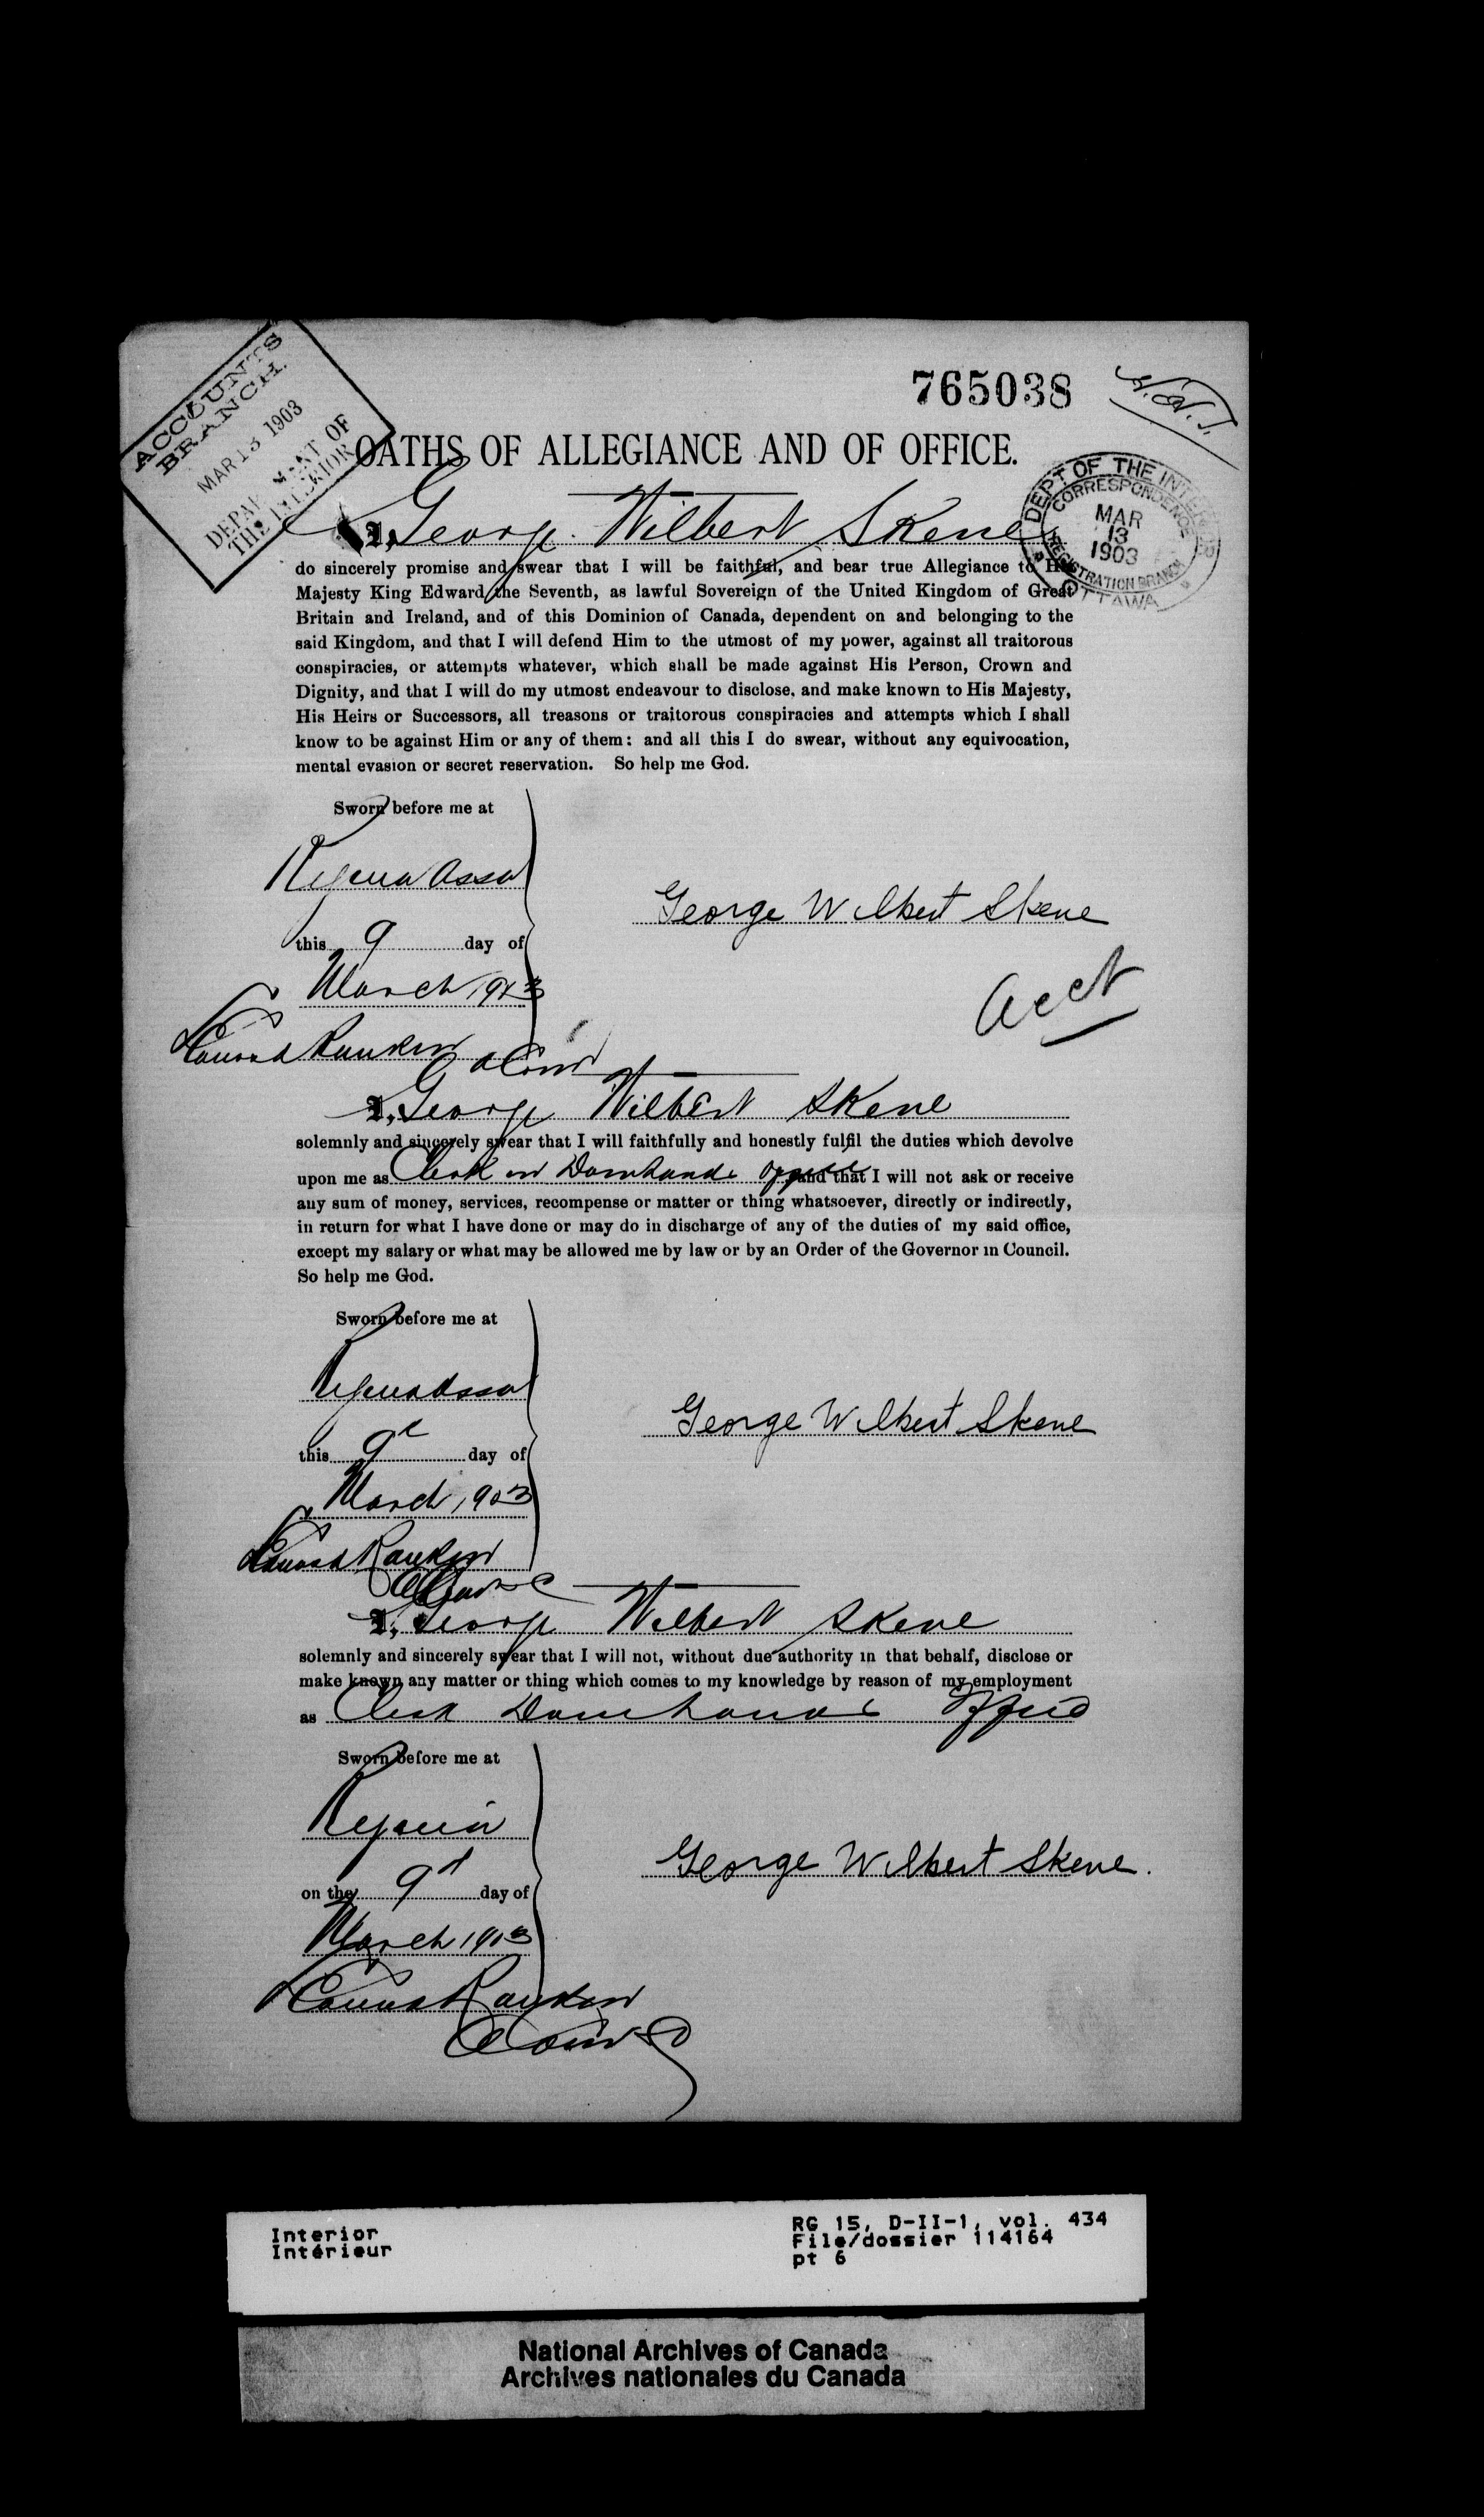 ACCOUNTS
BRANCH.
MAR 13 1903
DEPARTMENT OF
THE INTERIOR
765038
OATHS OF ALLEGIANCE AND OF OFFICE.
DEPT OF THE INTERIOR
CORRESPONDENCE
MAR
13
1903
REGISTRATION BRANCH
OTTAWA
I, George Wilbert Skene
do sincerely promise and swear that I will be faithful, and bear true Allegiance to His
Majesty King Edward the Seventh, as lawful Sovereign of the United Kingdom of Great
Britain and Ireland, and of this Dominion of Canada, dependent on and belonging to the
said Kingdom, and that I will defend Him to the utmost of my power, against all traitorous
conspiracies, or attempts whatever, which shall be made against His Person, Crown and
Dignity, and that I will do my utmost endeavour to disclose, and make known to His Majesty,
His Heirs or Successors, all treasons or traitorous conspiracies and attempts which I shall
know to be against Him or any of them: and all this I do swear, without any equivocation,
mental evasion or secret reservation. So help me God.
Sworn before me at
Regina Assa
George Wilbert Skene
this 9 day of
March 1903
Acct
Rankin
I, George Wilbert Skene
solemnly and sincerely swear that I will faithfully and honestly fulfil the duties which devolve
upon me as Clerk in Dom Lands Office and that I will not ask or receive
any sum of money, services, recompense or matter or thing whatsoever, directly or indirectly,
in return for what I have done or may do in discharge of any of the duties of my said office,
except my salary or what may be allowed me by law or by an Order of the Governor in Council.
So help me God.
Sworn before me at
Regina Assa
George Wilbert Skene
this 9 day of
March 1903
Rankin
I, George Wilbert Skene
solemnly and sincerely swear that I will not, without due authority in that behalf, disclose or
make known any matter or thing which comes to my knowledge by reason of my employment
as Clerk Dom Lands Office
Sworn before me at
Regina
George Wilbert Skene.
on the 9 day of
March 1903
Rankin
Interior
Intérieur
RG 15, D-II-1, vol. 434
File/dossier 114164
pt 6
National Archives of Canada
Archives nationales du Canada